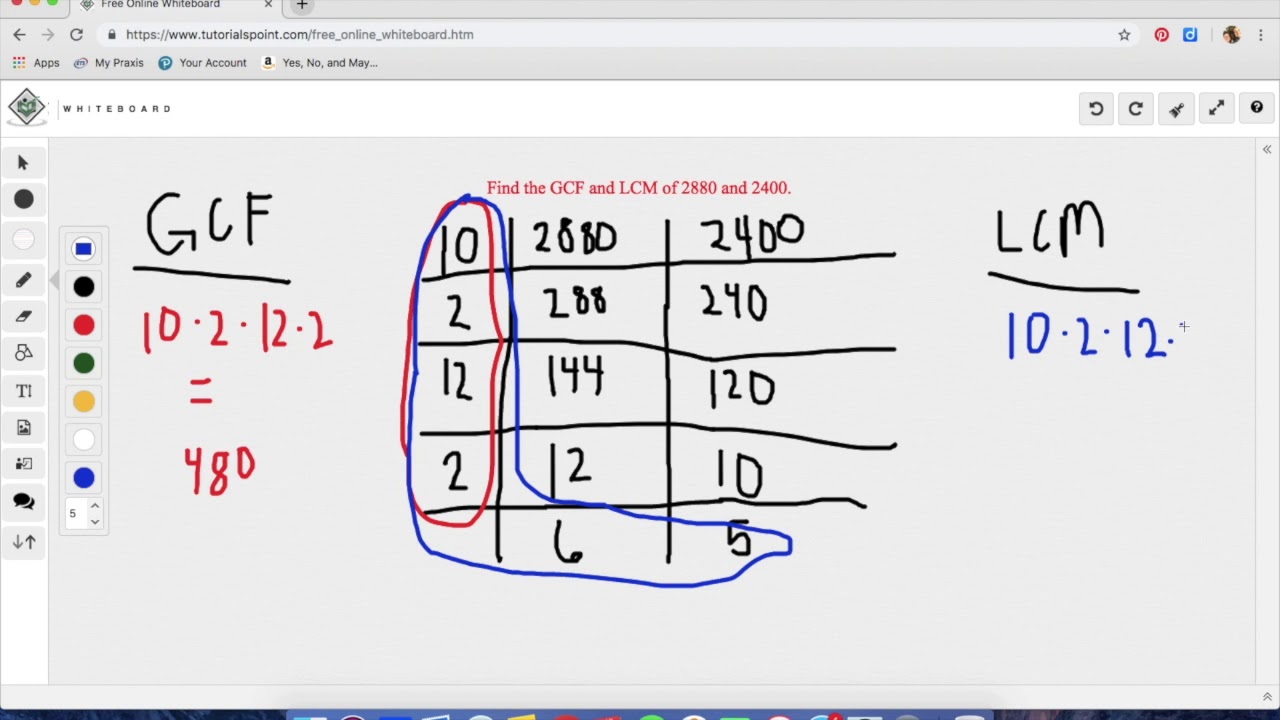 Free Online Whiteboard
https://www.tutorialspoint.com/free_online_whiteboard.htm
Apps My Praxis Your Account Yes, No, and May...
WHITEBOARD
Find the GCF and LCM of 2880 and 2400.
GCF
10 · 2 · 12 · 2
=
480
10 2880 2400
2 288 240
12 144 120
2 12 10
6 5
LCM
10 · 2 · 12 ·
5